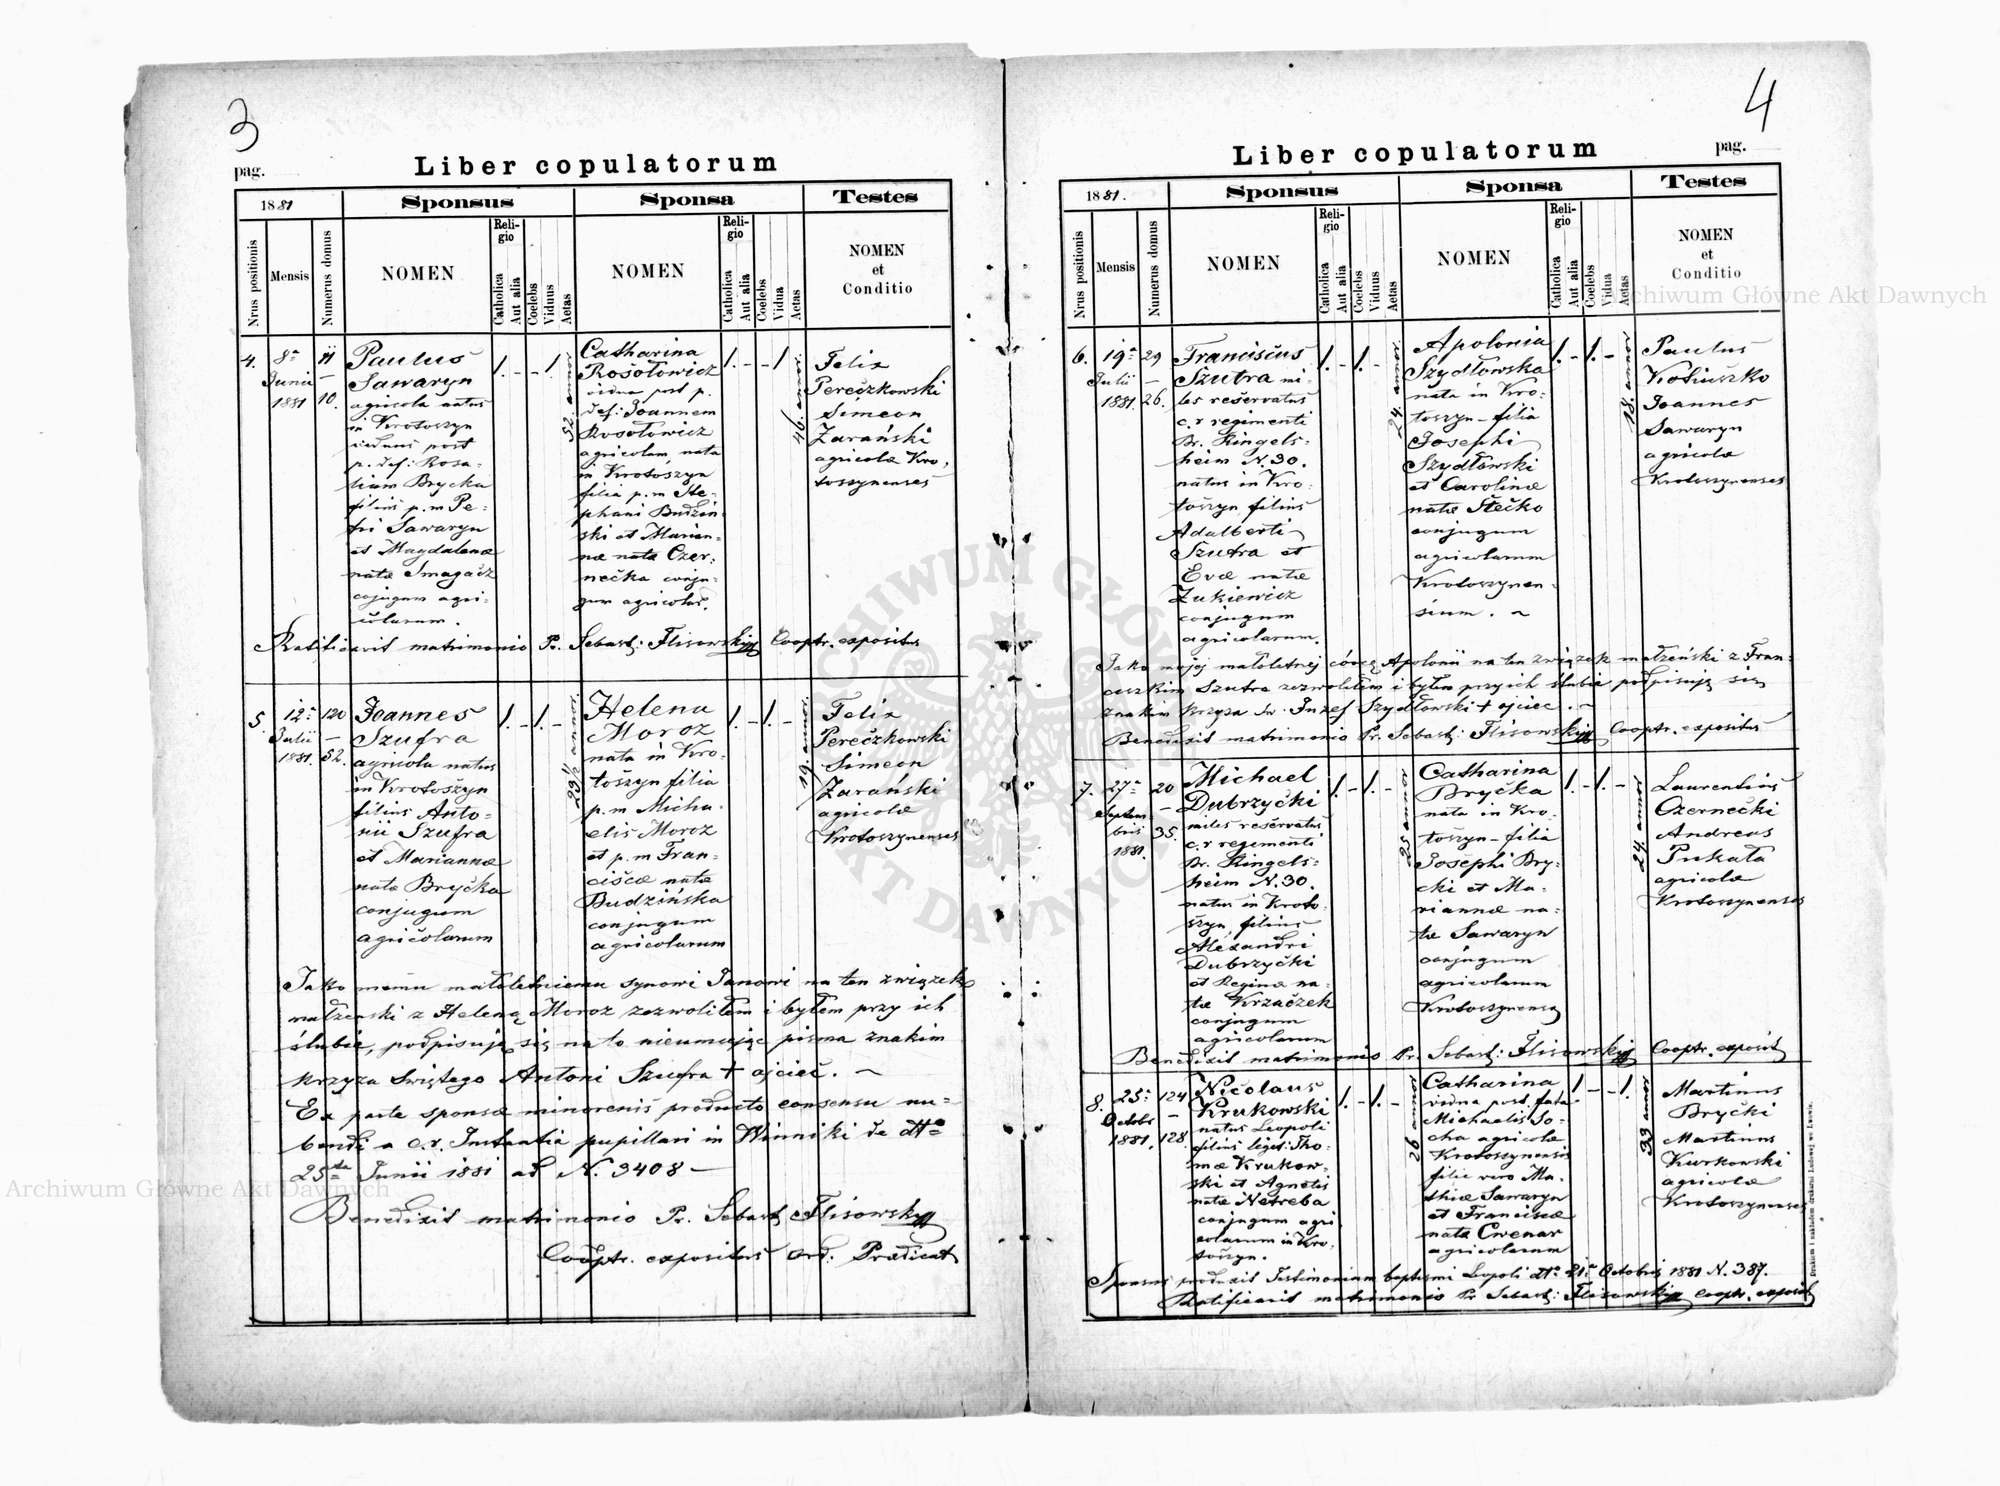 3
pag.
Liber copulatorum
1881
Sponsus
Sponsa
Testes
Nrus positionis
Mensis
Numerus domus
NOMEN
Religio
Catholica
Aut alia
Coelebs
Viduus
Aetas
NOMEN
Religio
Catholica
Aut alia
Coelebs
Vidua
Aetas
NOMEN
et
Conditio
4.
8ª
Junii
1881
11
—
10.
Paulus
Sawaryn
agricola natus
in Krotoszyn
viduus post
p. def: Rosa-
liam Brycka
filius p. m Pe-
tri Sawaryn
et Magdalenæ
natæ Smagacz
conjugum agri-
colarum.
1. - - 1.
52. annor
Catharina
Rosołowicz
vidua post p.
def: Joannem
Rosołowicz
agricolam, nata
in Krotoszyn
filia p. m Ste-
phani Budzin-
ski et Marian-
næ natæ Czer-
necka conju-
gum agricolar.
1. - - 1
46. annor.
Felix
Pereczkowski
Simeon
Zarański
agricolæ Kro-
toszynenses
Ratificavit matrimonio Pr. Sebast: Flisowski Cooptr. expositus
5.
12ª
Julii
1881.
120
—
52.
Joannes
Szufra
agricola natus
in Krotoszyn
filius Anto-
nii Szufra
et Mariannæ
natæ Brycka
conjugum
agricolarum
1. - 1. -
23½ annor.
Helena
Moroz
nata in Kro-
toszyn filia
p. m Micha-
elis Moroz
et p. m Fran-
ciscæ natæ
Budzińska
conjugum
agricolarum
1. - 1. -
19. annor.
Felix
Pereczkowski
Simeon
Zarański
agricolæ
Krotoszynenses
Jako memu małoletniemu synowi Janowi na ten związek
małżenski z Heleną Moroz zezwoliłem i byłem przy ich
ślubie, podpisuję się na to nieumiejąc pisma znakim
krzyża Świętego Antoni Szufra + ojciec. ~
Ex parte sponsæ minorenis producto consensu nu-
bendi a c. r. Instantia pupillari in Winniki de dtto
25ta Junii 1881 ad N. 3408 —
Benedixit matrimonio Pr. Sebast: Flisowski
Cooptr. expositus ord. Prædicat
4
pag.
Liber copulatorum
1881.
Sponsus
Sponsa
Testes
Nrus positionis
Mensis
Numerus domus
NOMEN
Religio
Catholica
Aut alia
Coelebs
Viduus
Aetas
NOMEN
Religio
Catholica
Aut alia
Coelebs
Vidua
Aetas
NOMEN
et
Conditio
6.
19ª
Julii
1881.
29
—
26.
Franciscus
Szutra mi-
les reservatus
c. r regimenti
Br. Ringels-
heim N. 30.
natus in Kro-
toszyn filius
Adalberti
Szutra et
Evæ natæ
Zukiewicz
conjugum
agricolarum.
1. - 1. -
24. annor.
Apolonia
Szydłowska
nata in Kro-
toszyn - filia
Josephi
Szydłowski
et Carolinæ
natæ Stečko
conjugum
agricolarum
Krotoszynen-
sium. ~
1. - 1. -
18. annor
Paulus
Kosiuszko
Joannes
Sawaryn
agricolæ
Krotoszynenses
Jako mojej małoletnej córcę Apolonii na ten związek małżeński z Fran-
ciszkim Szutra zezwoliłem i byłem przy ich ślubie podpisuję się
znakim krzyża św. Józef Szydłowski + ojciec. ~
Benedixit matrimonio Pr. Sebast: Flisowski Cooptr. expositus
7.
27ª
Septem-
bris
1881.
20
—
35.
Michael
Dubrzycki
miles reservatus
c. r regimenti
Br. Ringels-
heim N. 30.
natus in Kroto-
szyn, filius
Alexandri
Dubrzycki
et Reginæ na-
tæ Krzaczek
conjugum
agricolarum
1. - 1. -
25 annor
Catharina
Brycka
nata in Kro-
toszyn - filia
Josephi Bry-
cki et Ma-
riannæ na-
tæ Sawaryn
conjugum
agricolarum
Krotoszynens
1. - 1. -
24. annor
Laurentius
Czernecki
Andreas
Pukała
agricolæ
Krotoszynenses
Benedixit matrimonio Pr. Sebast: Flisowski Cooptr. exposit
8.
25ª
Octobr
1881.
124
—
128.
Nicolaus
Krukowski
natus Leopoli
filius legit: Tho-
mæ Krukow-
ski et Agnetis
natæ Netreba
conjugum agri
colarum in Kro-
toszyn.
1. - 1. -
26 annor
Catharina
vidua post fata
Michaelis So-
cha agricolæ
Krotoszynensis
filia vero Ma-
thiæ Sawaryn
et Franciscæ
natæ Cwenar
agricolarum
1 - - 1.
33 annor
Martinus
Brycki
Martinus
Kurkowski
agricolæ
Krotoszynenses
Sponsus produxit Testimonium baptismi Leopoli dto 21. Octobris 1881 N. 387.
Ratificavit matrimonio Pr Sebast: Flisowski cooptr. exposit
Drukiem i nakładem drukarni Ludowej we Lwowie.
Archiwum Główne Akt Dawnych
Archiwum Główne Akt Dawnych
ARCHIWUM GŁÓWNE AKT DAWNYCH